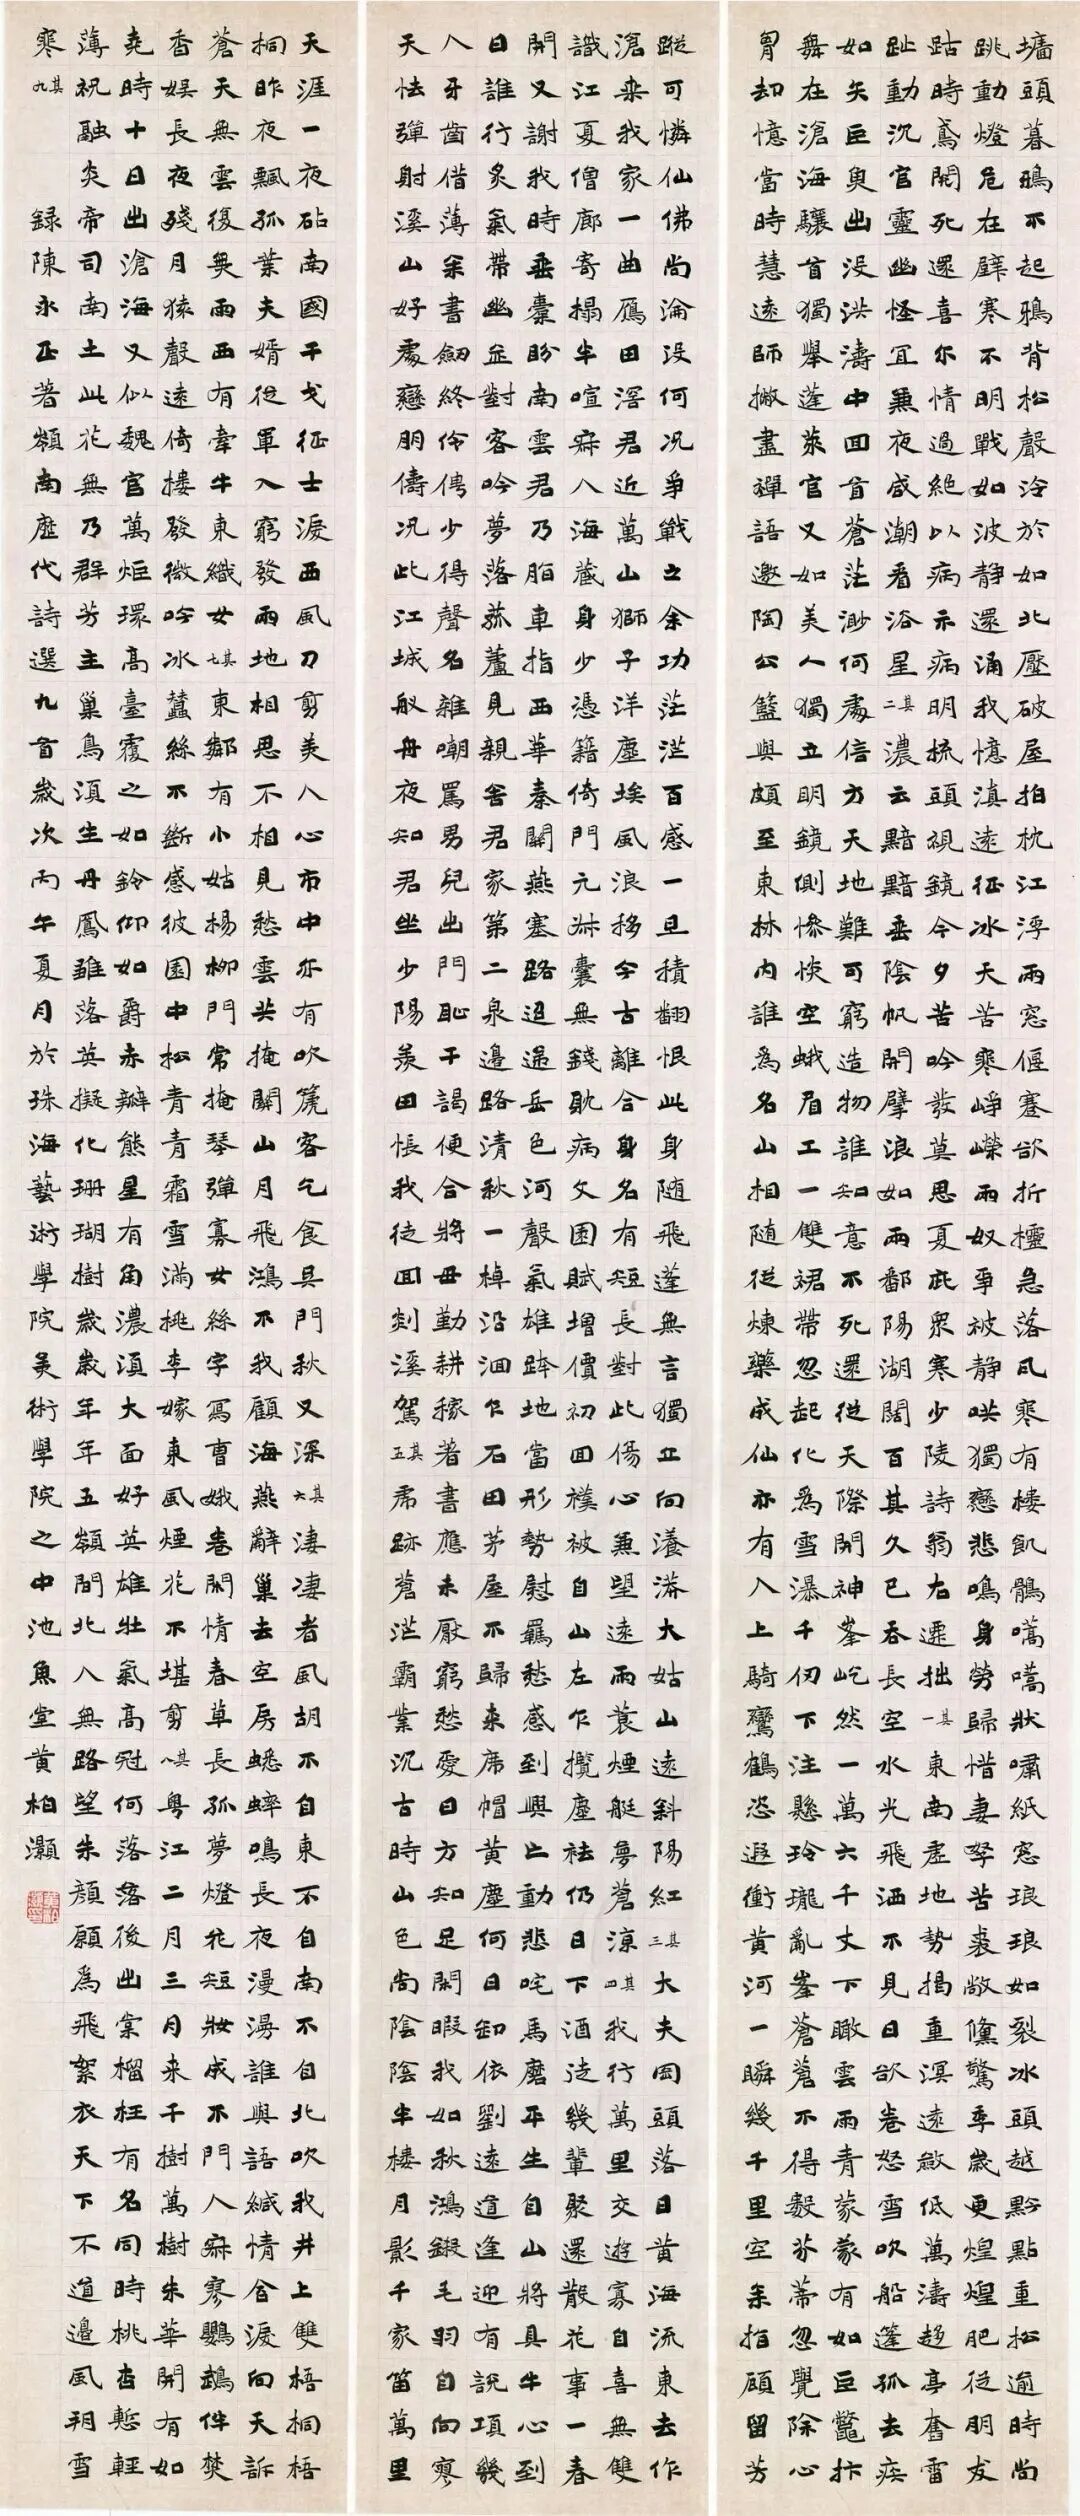 墻頭暮鴉不起鴉背松聲泠於如北壓破屋拍枕江浮雨窓偃蹇欲折檣急落瓦寒有樓飢鶻嗃嗃狀嘯紙窓琅琅如裂冰頭越黔點重松逾時尚
跳動燈危在壁寒不明戰如波靜還涌我憶滇遠征冰天苦寒崢嶸雨奴爭被靜哄獨戀悲鳴身勞歸惜妻孥苦裘敝儻驚季歲更煌煌肥從朋友
跕時鳶開死還喜尔情過絕以病示病明梳頭視鏡今夕苦吟發莫思夏庇眾寒少陵詩翁右遷拙其一東南虛地勢揭重溟遠啟低萬濤趨亭奮雷
趾動沉官靈幽怪宜兼夜咸潮看浴星其二濃云黯黯垂陰帆開擘浪如雨鄱陽湖闊百其久已吞長空水光飛洒不見日欲卷怒雪吹船篷孤去疾
如矢巨魚出没洪濤中回首蒼茫渺何處信方天地難可窮造物誰知意不死還從天際開神峯屹然一萬六千丈下瞰雲雨青蒙蒙有如巨鼇抃
舞在滄海驤首獨舉蓬萊官又如美人獨立明鏡側慘惔空蛾眉工一雙裙帶忽起化為雪瀑千仞下注懸玲瓏亂峯蒼蒼不得數芬蒂忽覺除心
胃却憶當時慧遠師撇盡禪語邀陶公籃輿頗至東林內誰為名山相隨從煉藥成仙亦有人上騎鸞鶴恣遐衝黃河一瞬幾千里空余指顧留芳
蹤可憐仙佛尚淪没何況爭戰之余功茫茫百感一旦積翻恨此身隨飛蓬無言獨立向瀁漭大姑山遠斜陽紅其三大夫岡頭落日黃海流東去作
滄来我家一曲鴈田滘君近萬山獅子洋塵埃風浪移今古離合身名有短長對此傷心兼望遠雨蓑煙艇夢蒼涼其四我行萬里交遊寡自喜無雙
識江夏僧廊寄榻半喧寂八海藏身少憑籍倚門元叔囊無錢耽病文困賦增價初回樸被自山左乍攬塵袪仍日下酒徒幾輩聚還散花事一春
開又謝我時垂橐盼南雲君乃脂車指西華秦關燕塞路迢遞岳色河聲氣雄跨地當形勢慰羈愁感到興亡動悲咤馬磨平生自山將具牛心到
日誰行炙氣帶幽並對客吟夢落菰蘆見親舍君家第二泉邊路清秋一棹沿洄乍石田茅屋不歸来席帽黃塵何日卸依劉遠道逢迎有說項幾
八牙齒借薄余書劒終伶俜少得聲名雜嘲罵男兒出門恥干謁便合將毋勤耕稼著書應未厭窮愁愛日方知足閑暇我如秋鴻鎩毛羽自向寥
天怯彈射溪山好處戀朋儔況此江城舟夜知君坐少陽羨田悵我徒回剡溪駕其五虎跡蒼茫霸業沉古時山色尚陰陰半樓月影千家笛萬里
天涯一夜砧南國干戈征士淚西風刀剪美人心市中亦有吹篪客乞食吳門秋又深其六淒淒者風胡不自東不自南不自北吹我井上雙梧桐梧
桐昨夜飄孤葉夫婿從軍入窮發雨地相思不相見愁雲共掩關山月飛鴻不我顧海燕辭巢去空房蟋蟀鳴長夜漫漫誰與語緘情含淚向天訴
蒼天無雲復無雨西有牽牛東織女其七東鄰有小姑楊柳門常掩琴彈寡女絲字寫曹娥卷閑情春草長孤夢燈花短妝成不門人寂寥鸚鵡伴焚
香娛長夜殘月猿聲遠倚樓發微吟冰蠶絲不斷感彼園中松青青霜雪滿桃李嫁東風煙花不堪剪其八粵江二月三月来千樹萬樹朱華開有如
堯時十日出滄海又似魏官萬炬環高臺覆之如鈴仰如爵赤瓣熊星有角濃湏大面好英雄壯氣高冠何落落後出棠榴枉有名同時桃杏慙輕
薄祝融炎帝司南土此花無乃群芳主巢鳥湏生丹鳳雛落英擬化珊瑚樹歲歲年年五嶺間北人無路望朱顏願為飛絮衣天下不道邊風朔雪
寒其九 録陳永正著嶺南歷代詩選九首歲次丙午夏月於珠海藝術學院美術學院之中池魚堂黃柏灝